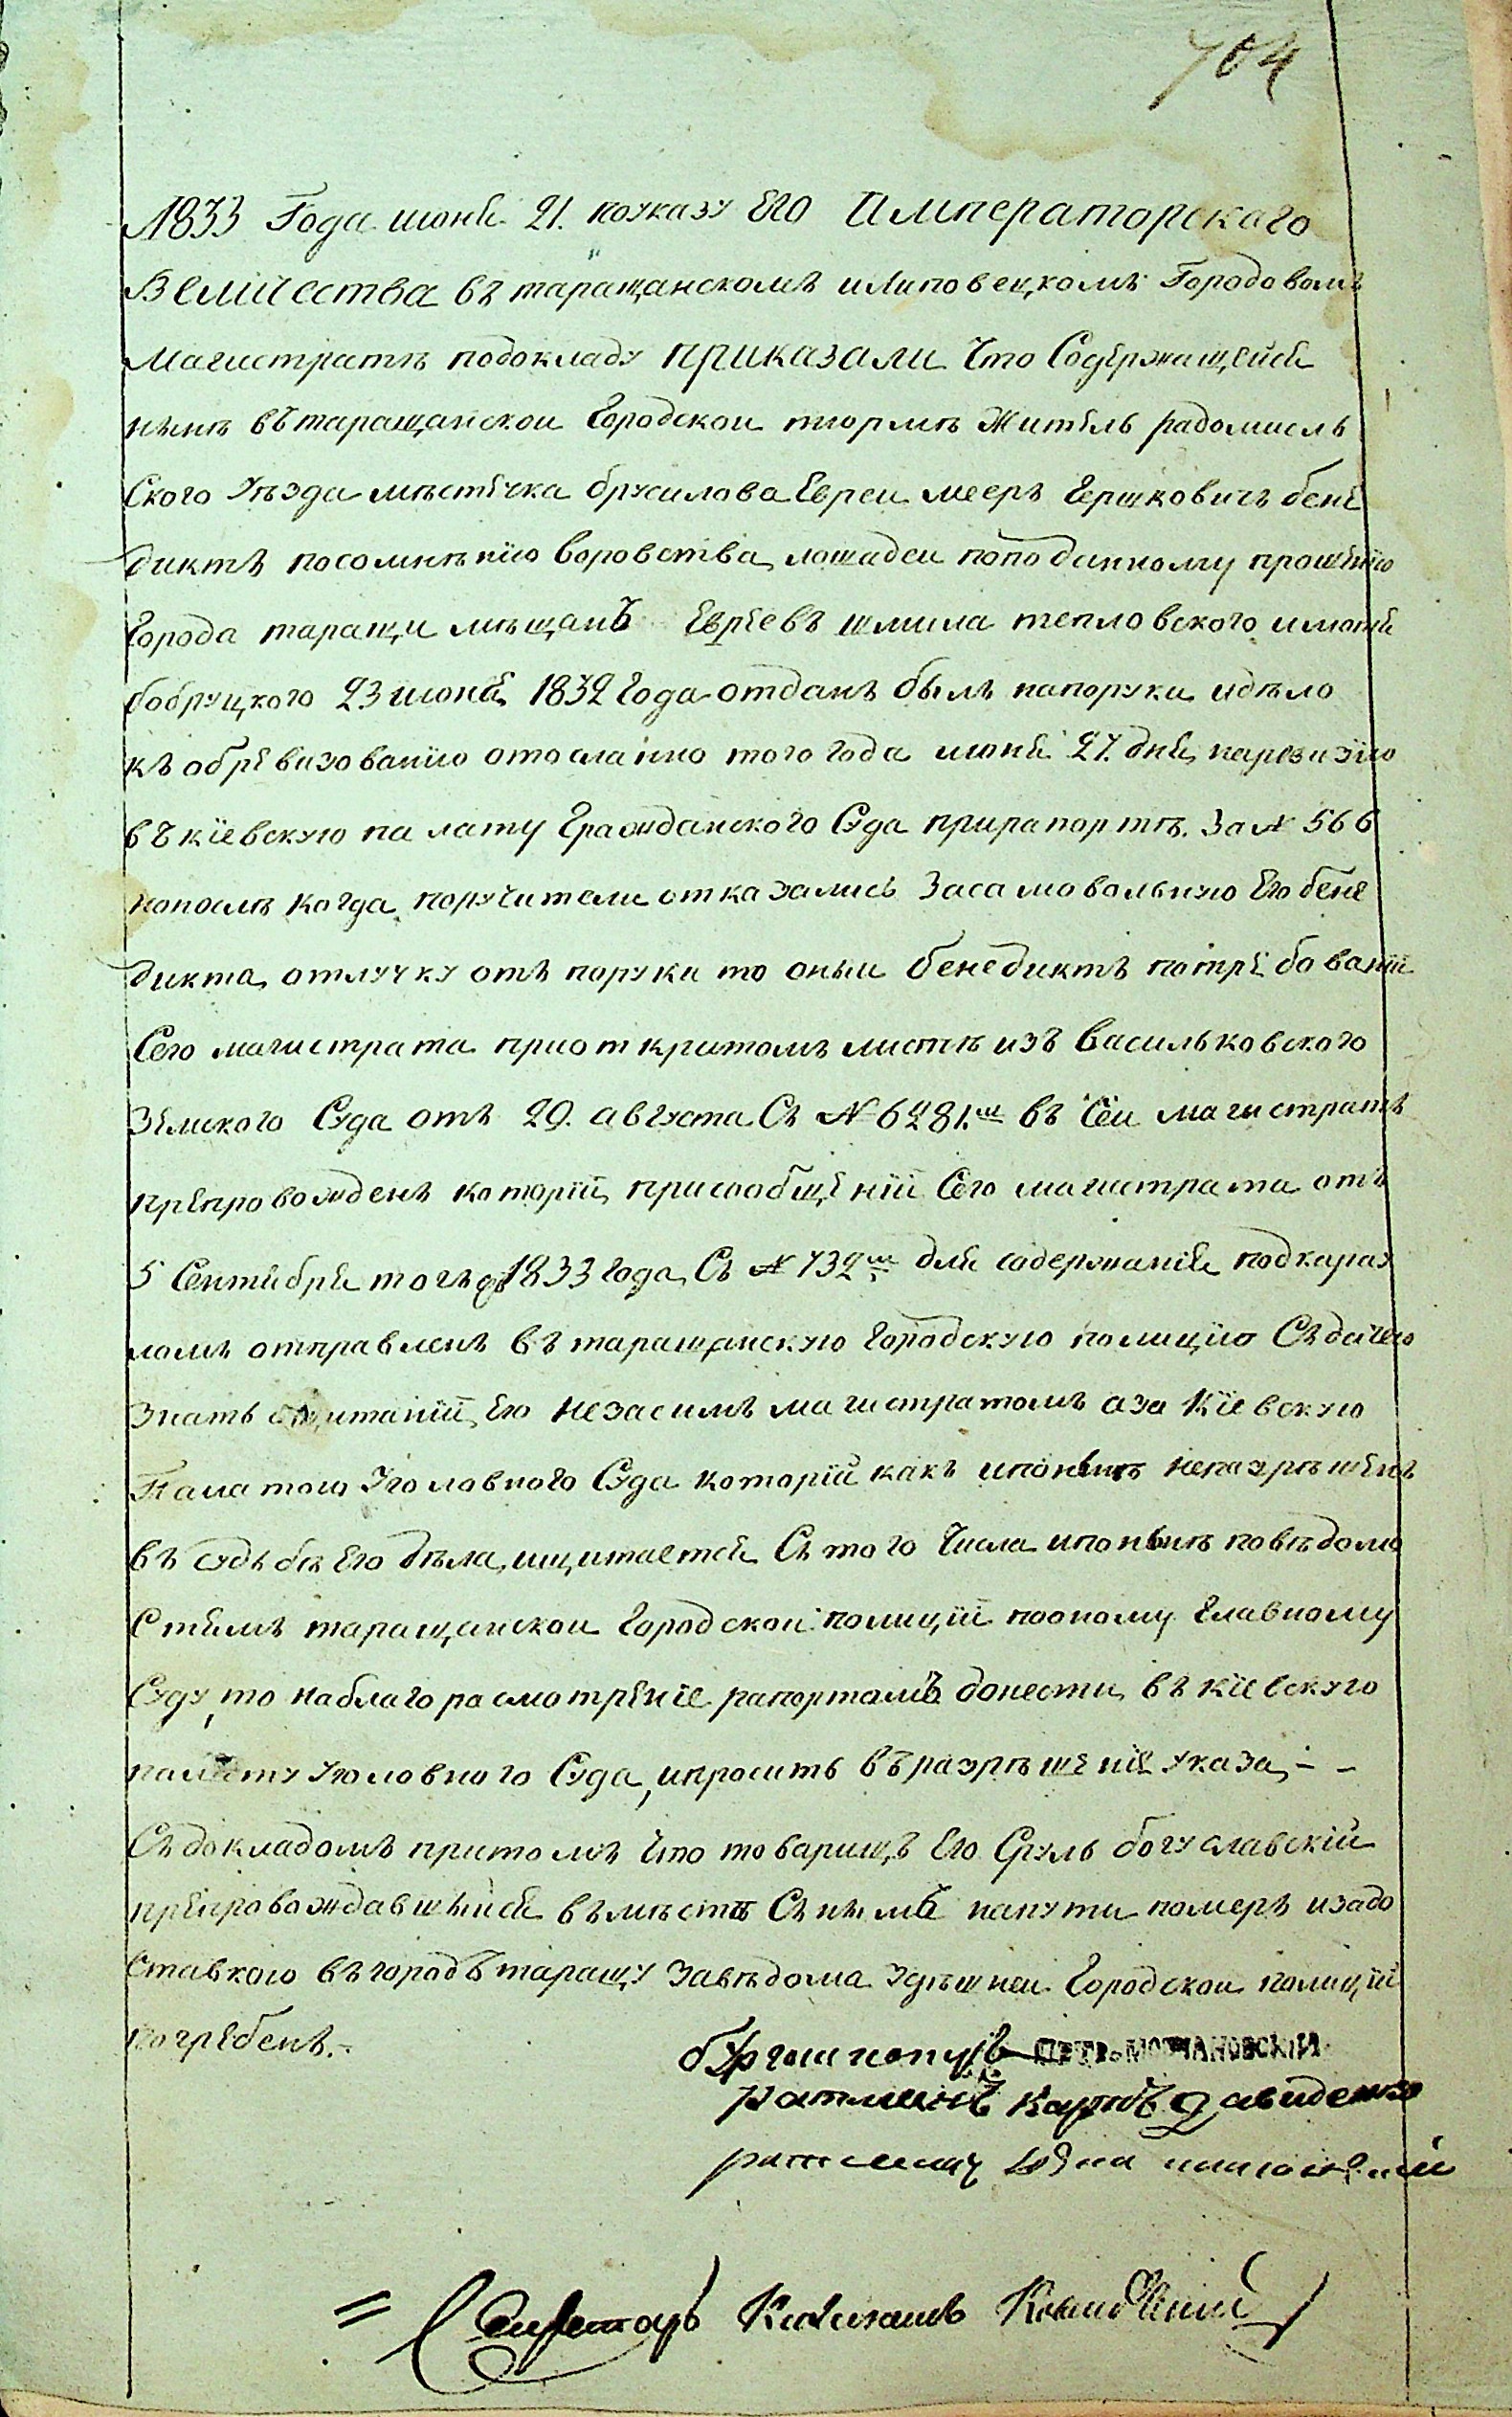 704
1833 Года июня 21. поуказу Его Императорскаго
Величества въ таращанскомъ илиповецкомъ Городовомъ
Магистратѣ подокладу приказали Что Содержащейся
нынѣ въ таращанскои Городскои тюрмѣ Житель радомисль
Ского Уѣзда мѣстечка брусилова Евреи мееръ Гершковичъ бене
диктъ посомнѣнію воровства лошадеи поподанному прошению
Города таращи мѣщанъ Евреевъ шмила тепловского имотя
бобруцкого 23 июня 1832 Года отданъ былъ напоруки идѣло
къ обревизованию отосланно того года июня 27. дня наревизию
въ кіевскую палату Гражданского Суда прирапортѣ. За № 566
попослѣ когда поручители отказались Засамовольную Его бене
дикта отлучку отъ поруки то оныи бенедиктъ потребованіи
Сего магистрата приоткритомъ листѣ изъ васильковского
Земского Суда отъ 29. августа Съ № 6281.мъ въ Сеи магистратъ
препровожденъ которіи присообщеніи Сего магистрата отъ
5 Сентября тогожъ 1833 года Съ № 732мъ для содержанія подкарау
ломъ отправленъ въ таращанскую Городскую полицию Съдачею
Знать ощитаніи Его незасимъ магистратомъ аза Кіевскую
Палатою Уголовного Суда которіи какъ ипонынѣ неразрѣшенъ
въ судьбѣ Его дѣла, ищитается Съ того Числа ипонынѣ повѣдомо
Стямъ таращанскои Городскои полиціи пооному Главному
Суду, то наблагорасмотреніе рапортомъ донести въ кіевскую
палату Уголовного Суда, ипросить въ разрѣшеніе Указа, - -
Съ докладомъ притомъ Что товарищъ Его Сруль богуславскій
препровождавшыйся вѣмѣстѣ Съ нымъ напути померъ изадо
Ставкою въ городъ таращу Завѣдома Здѣшнеи Городскои полиціи
погребенъ. -
бургомистръ ПЕТРЪ МОЧАНОВСКІЙ
ратманъ Карпъ Давиденко
ратманъ
= Секретарь